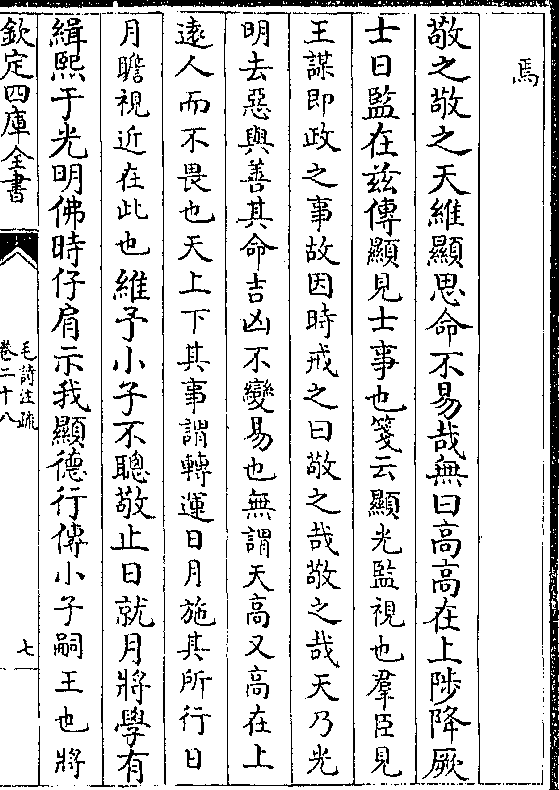 焉
敬之敬之天維顯思命不易哉無曰髙髙在上陟降厥
士日監在兹傳顯見士事也箋云顯光監視也羣臣見
王謀即政之事故因時戒之曰敬之哉敬之哉天乃光
明去惡與善其命吉凶不變易也無謂天髙又髙在上
逺人而不畏也天上下其事謂轉運日月施其所行日
月瞻視近在此也維予小子不聰敬止日就月將學有
緝熙于光明佛時仔肩示我顯德行傳小子嗣王也將
欽定四庫全書
毛詩注疏
卷二十八
七